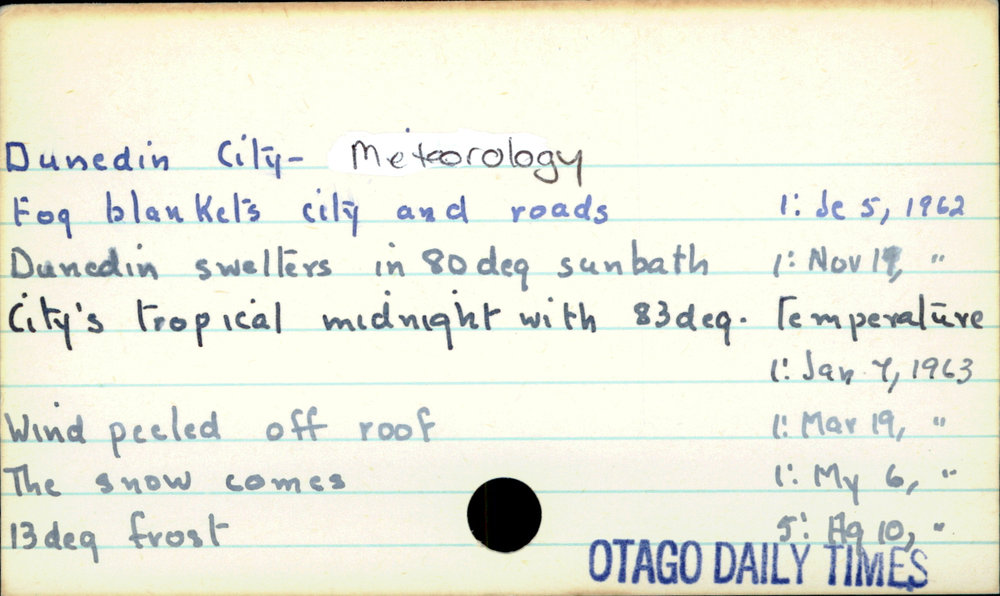 Dunedin City- Meteorology
Fog blankets city and roads 1: Je 5, 1962
Dunedin swelters in 80 deg sunbath 1: Nov 19, "
City's tropical midnight with 83 deg. Temperature
1: Jan 7, 1963
Wind peeled off roof 1: Mar 19, "
The snow comes 1: My 6, "
13 deg frost 5: Ag 10, "
OTAGO DAILY TIMES